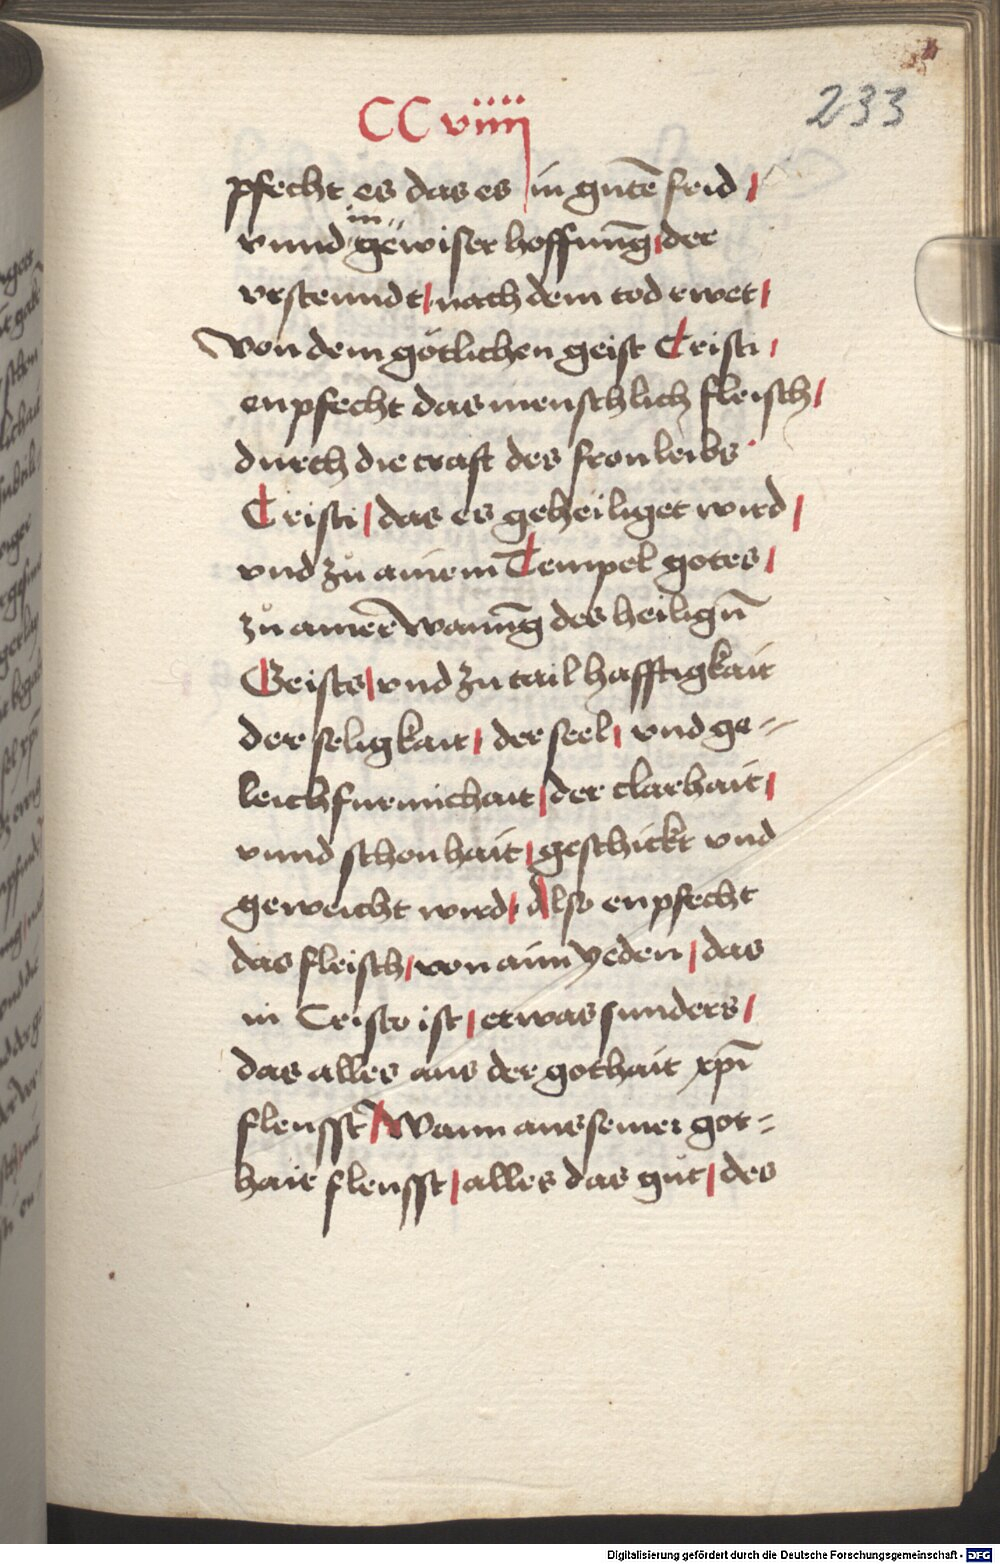 233
CCviiij
pfecht es das es in gutē frid /
vnnd in gewiser hoffnūg / der
vrstenndt / nach dem tod rwet /
Von dem götlichen geist Cristi /
enpfecht das menschlich fleisch /
durch die craft des fronleibs
Cristi / das es geheiliget wird /
vnd zů ainem Tempel gotes /
zů ainer wanūg des heiligñ
Geists / vnd zu tail hafftigkait
der seligkait / der seel / vnd ge=
leichfurmichait / der clarhait /
vnnd schonhait / geschickt vnd
geweicht wird / Also enpfecht
das fleisch / von aim yeden / das
in Cristo ist / etwas sunders /
das alles aus der gothait xpī
fleusst / Wann aus seiner got=
hait fleusst / alles das gůt / des
Digitalisierung gefördert durch die Deutsche Forschungsgemeinschaft - DFG